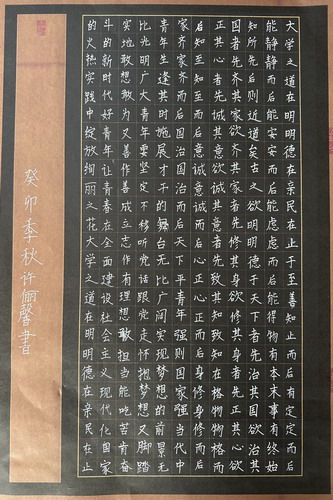 大学之道在明明德在亲民在止于至善知止而后有定定而后
能静静而后能安安而后能虑虑而后能得物有本末事有终始
知所先后则近道矣古之欲明明德于天下者先治其国欲治其
国者先齐其家欲齐其家者先修其身欲修其身者先正其心欲
正其心者先诚其意欲诚其意者先致其知致知在格物物格而
后知至知至而后意诚意诚而后心正心正而后身修身修而后
家齐家齐而后国治国治而后天下平青年强则国家强当代中
青年生逢其时施展才干的舞台无比广阔实现梦想的前景无
比光明广大青年要坚定不移听党话跟党走怀揣梦想又脚踏
实地敢想敢为又善作善成立志作有理想敢担当能吃苦肯奋
斗的新时代好青年让青春在全面建设社会主义现代化国家
的火热实践中绽放绚丽之花大学之道在明明德在亲民在止
癸卯季秋许俪馨書